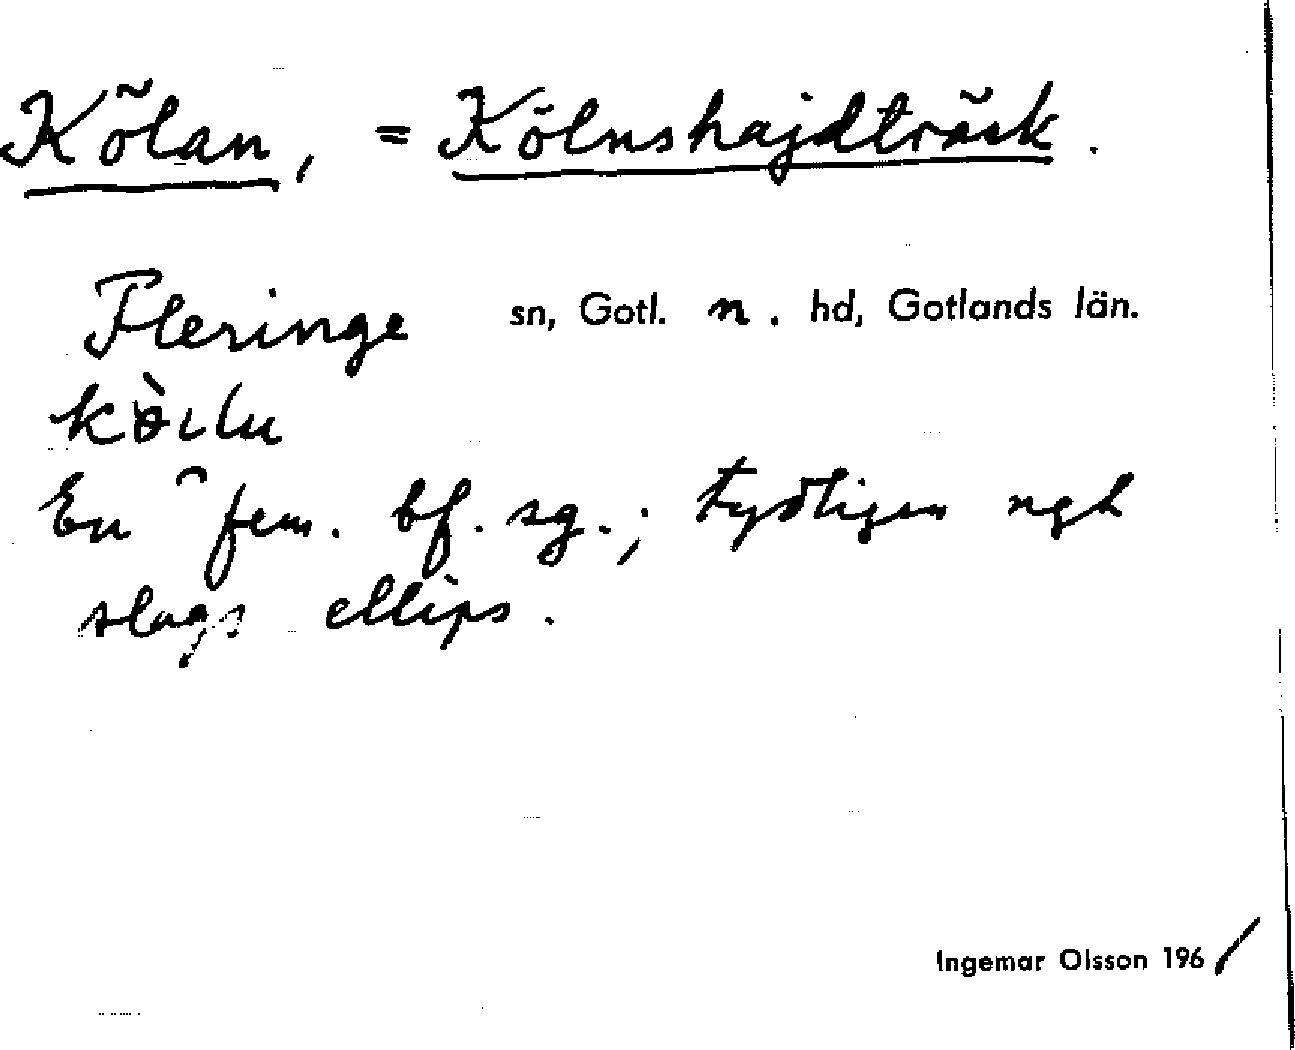 Kölan, = Kölnshajdträsk.
Fleringe sn, Gotl. n. hd, Gotlands län.
En fem. bf. sg.; tydligen ngt
slags ellips.
Ingemar Olsson 196/